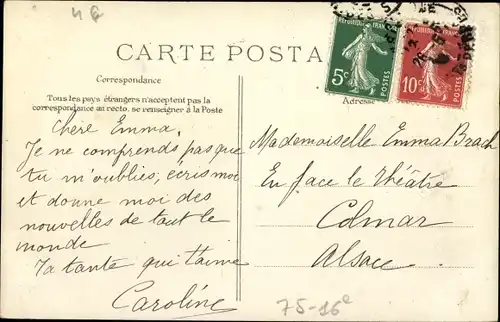 4 G
CARTE POSTA
Correspondance
Tous les pays étrangers n'acceptent pas la
correspondance au recto, se renseigner à la Poste
Chère Emma,
Je ne comprends pas que
tu m'oublies, écris moi
et donne moi des
nouvelles de tout le
monde
Ta tante qui t'aime
Caroline
REPUBLIQUE FRANÇAISE
5c
POSTES
REPUBLIQUE FRANÇAISE
10c
POSTES
Adresse
Mademoiselle Emma Brach
En face le Théâtre
Colmar
Alsace
75-16e